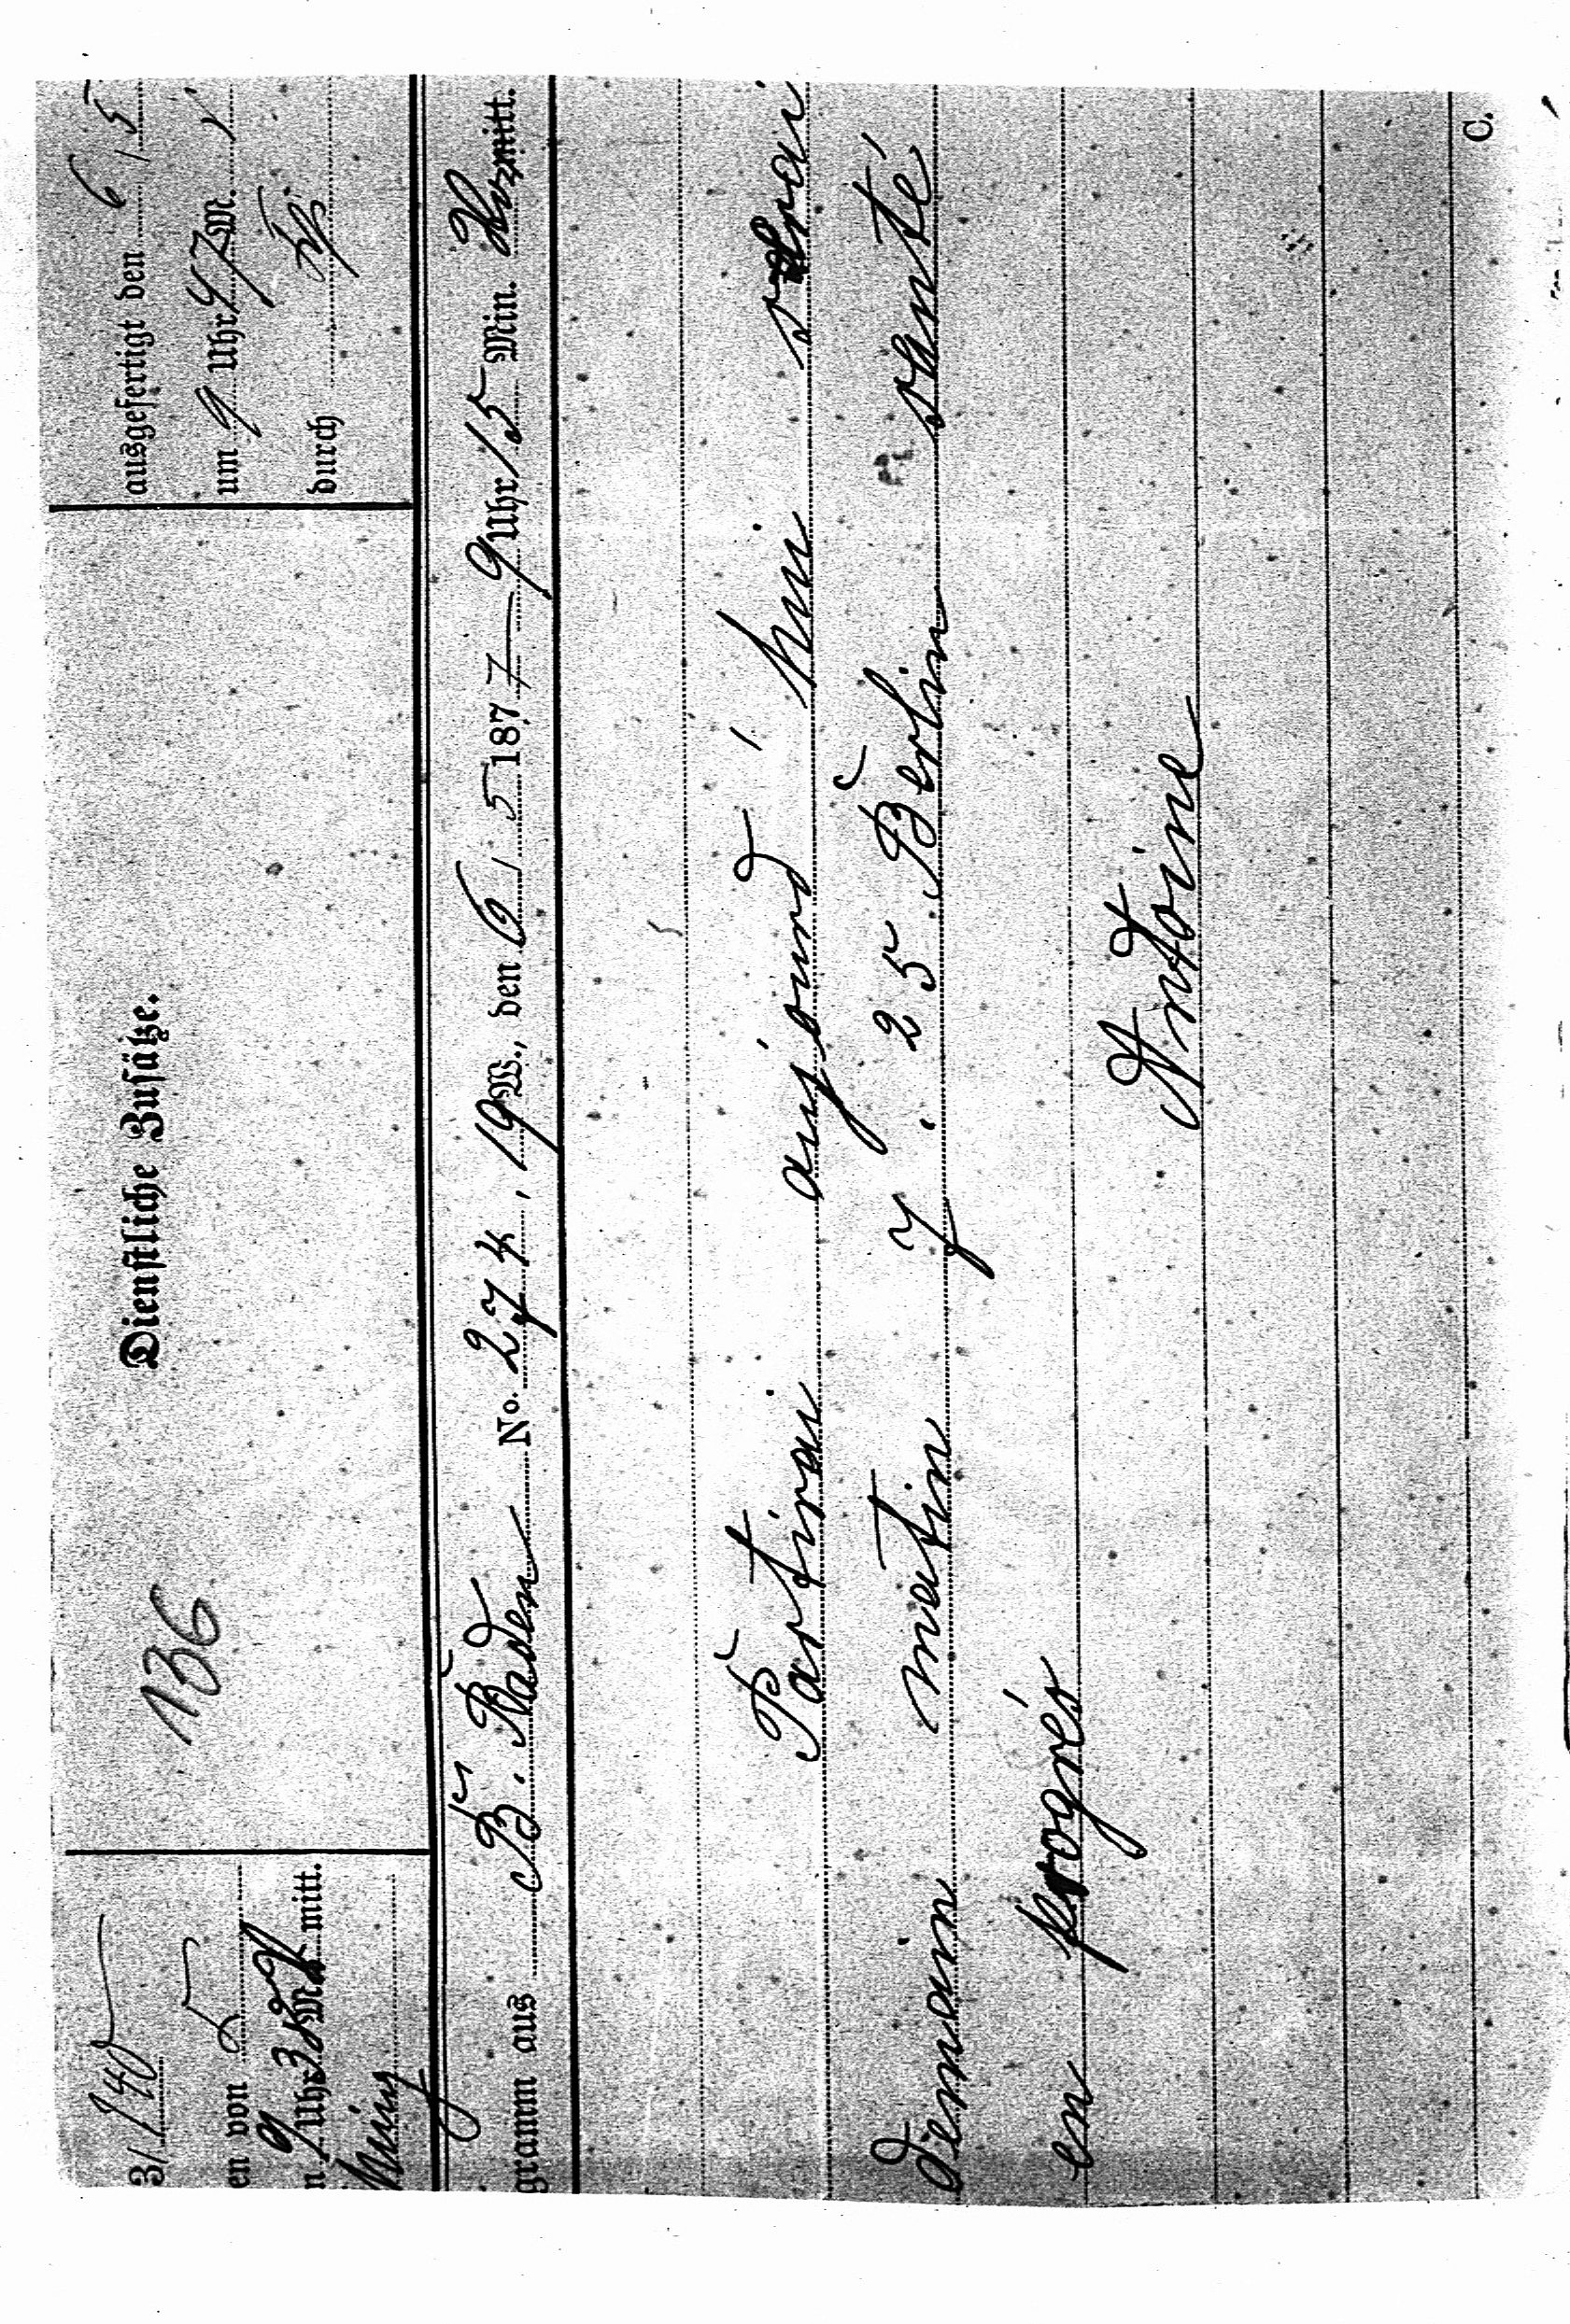 3/140
Dienstliche Zusätze.
ausgefertigt den 6/5
136
en von
um 9 Uhr 47 M.
n 9 Uhr mitt.
durch
gramm aus B. Baden No. 274, 19 W., den 6/5 1877 9 Uhr 15 Min. mitt.
Partirai aujourd'hui serai
demain matin 7. 25 Berlin santé
en progrés
Antoine
C.